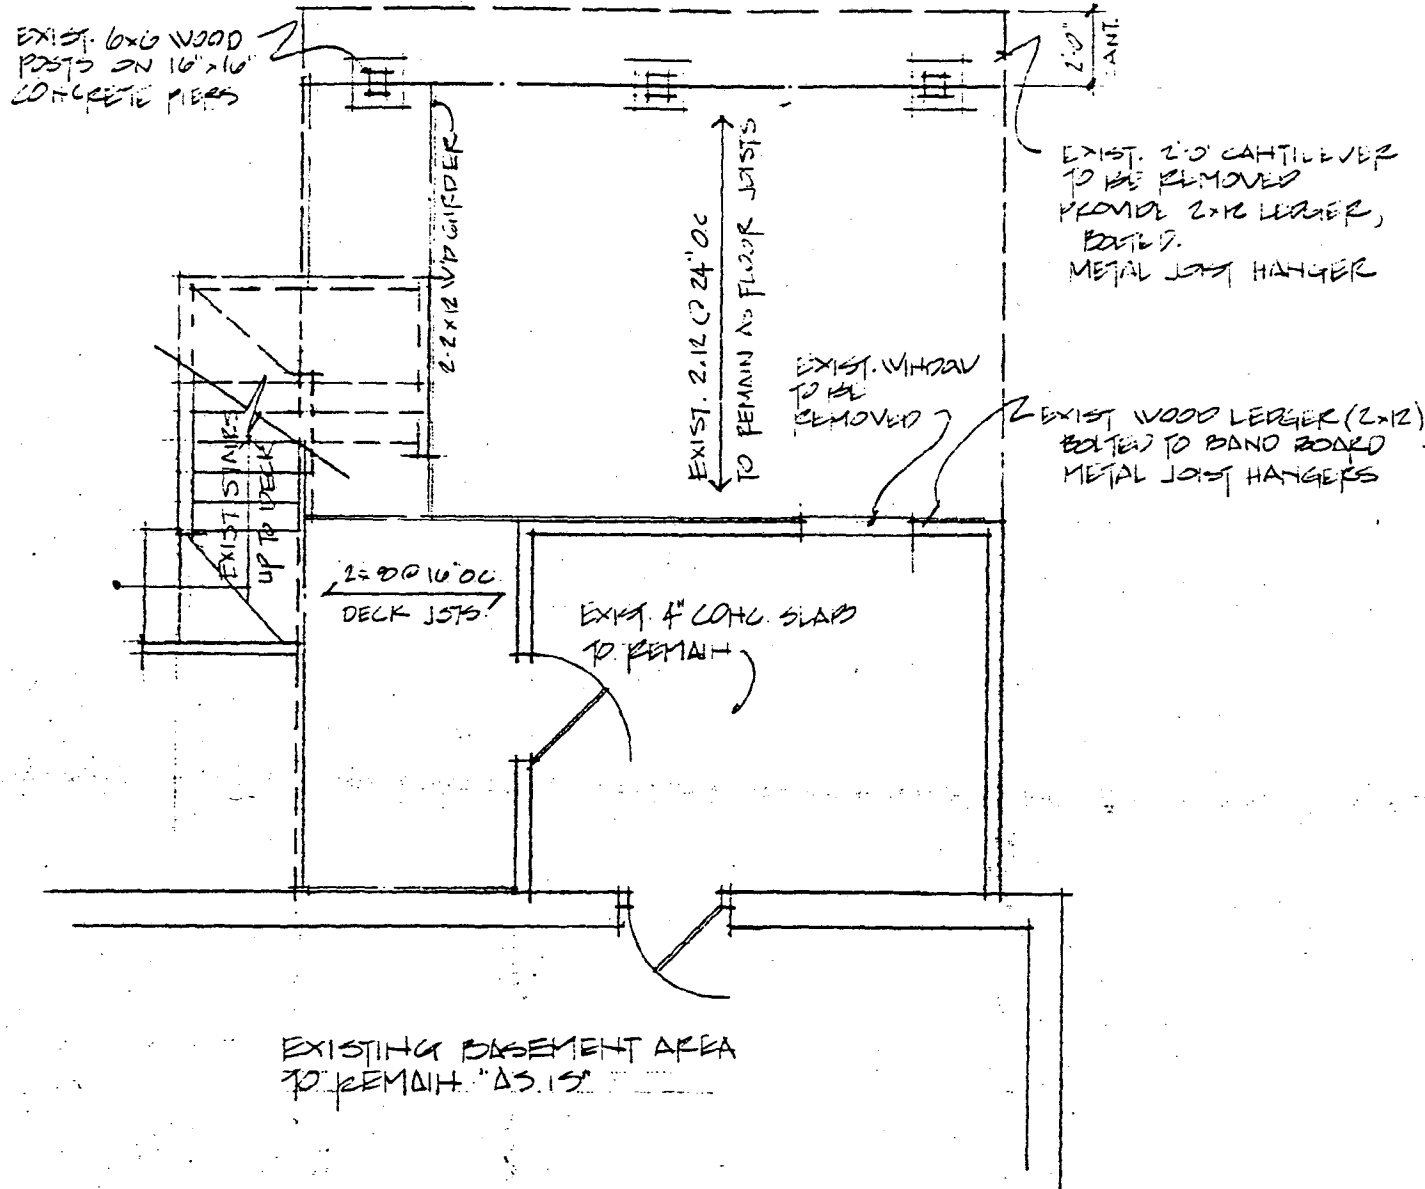 EXIST. 6x6 WOOD
POSTS ON 16"x16"
CONCRETE PIERS
2'-0"
CANT.
EXIST. 2'-0" CANTILEVER
TO BE REMOVED
PROVIDE 2x12 LEDGER,
BOLTED.
METAL JOIST HANGER
2-2x12 W'D GIRDER
EXIST. 2x12 @ 24" O.C
TO REMAIN AS FLOOR JOISTS
EXIST. WINDOW
TO BE
REMOVED
EXIST WOOD LEDGER (2x12)
BOLTED TO BAND BOARD
METAL JOIST HANGERS
EXIST STAIRS
UP TO DECK
@ 16" O.C.
DECK JSTS.
EXIST. 4" CONC. SLAB
TO REMAIN
EXISTING BASEMENT AREA
TO REMAIN "AS IS"